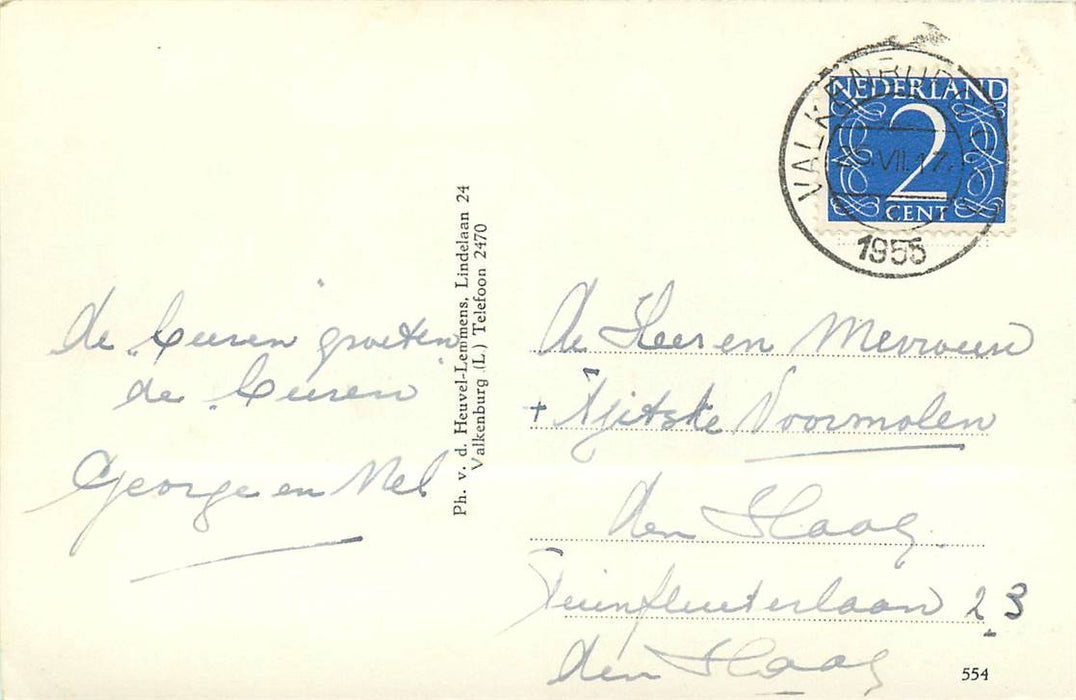 VALKENBURG
VII.17
1955
NEDERLAND
2
CENT
Ph. v. d. Heuvel-Lemmens, Lindelaan 24
Valkenburg (L.) Telefoon 2470
de groeten
de
George en Nel
de Heer en Mevrouw
+ Tjitske Voormolen
den Haag.
Tuinfluiterlaan 23
den Haag
554